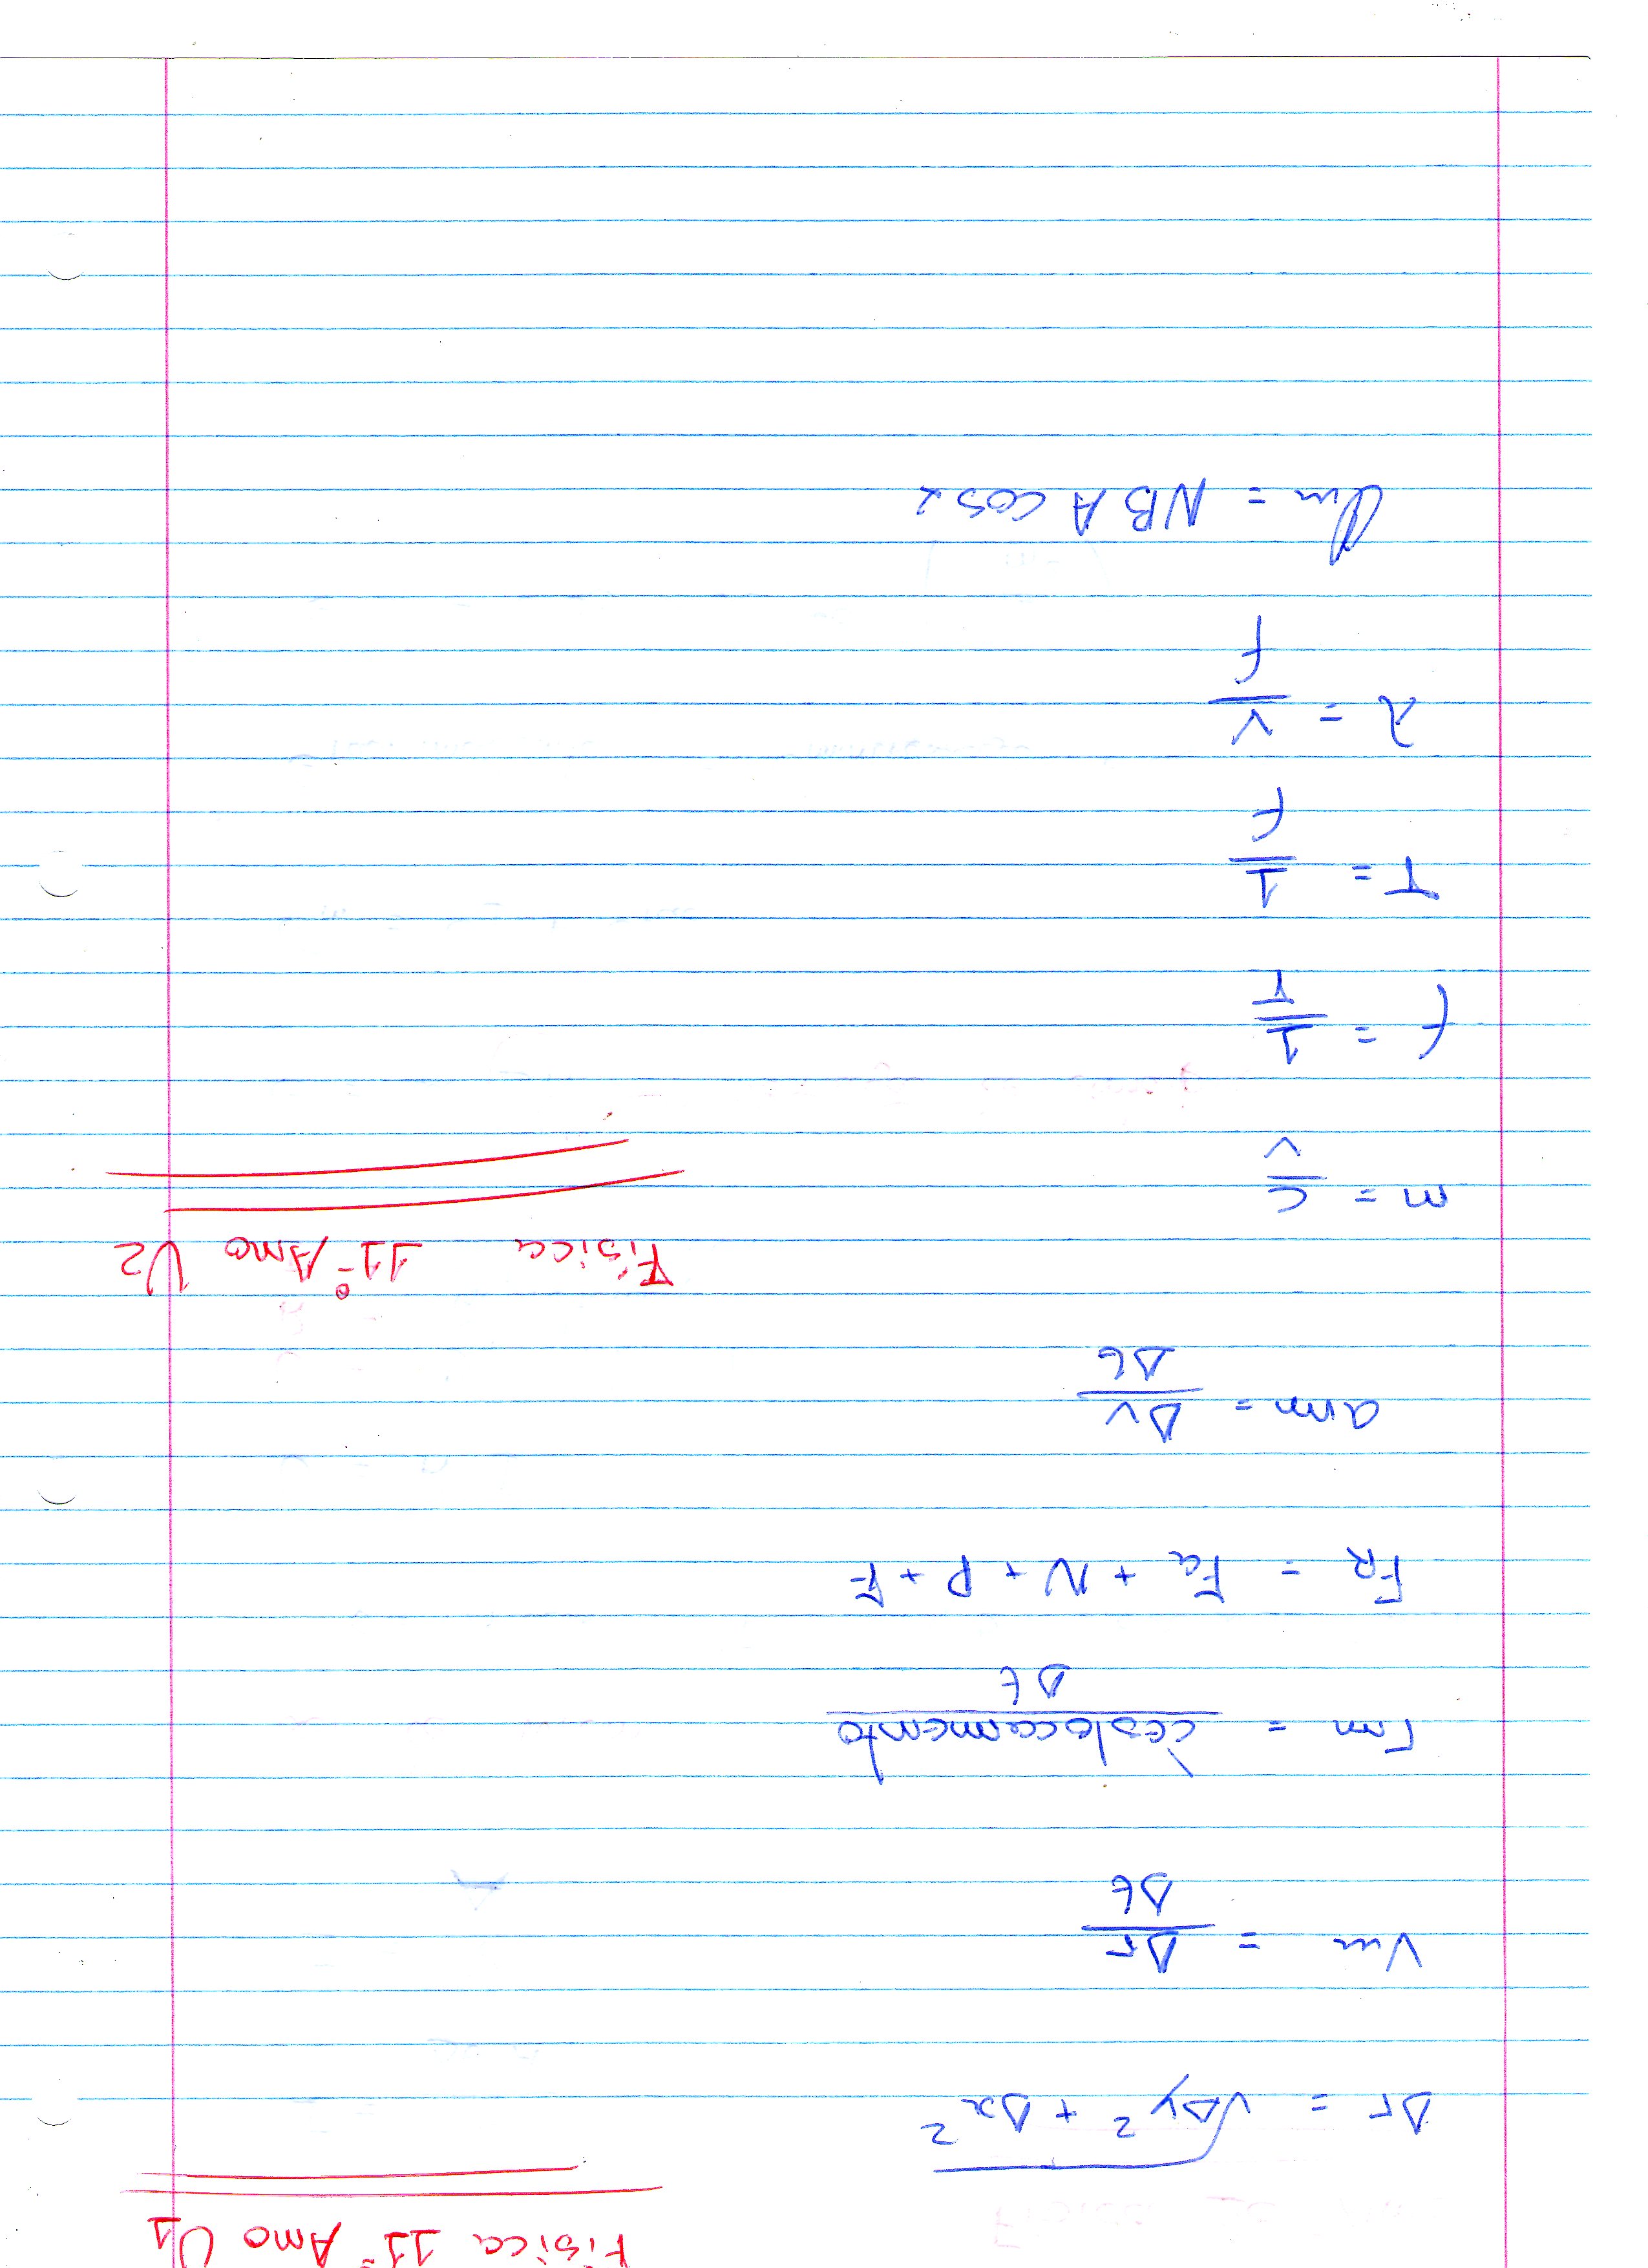 Física 11º Ano U1
Δr = √Δy² + Δx²
Vm = Δr / Δt
rm = deslocamento / Δt
FR = Fa + N + P + F
am = Δv / Δt
Física 11º Ano U2
n = c / v
f = 1 / T
T = 1 / f
λ = v / f
Φm = NBA cos α